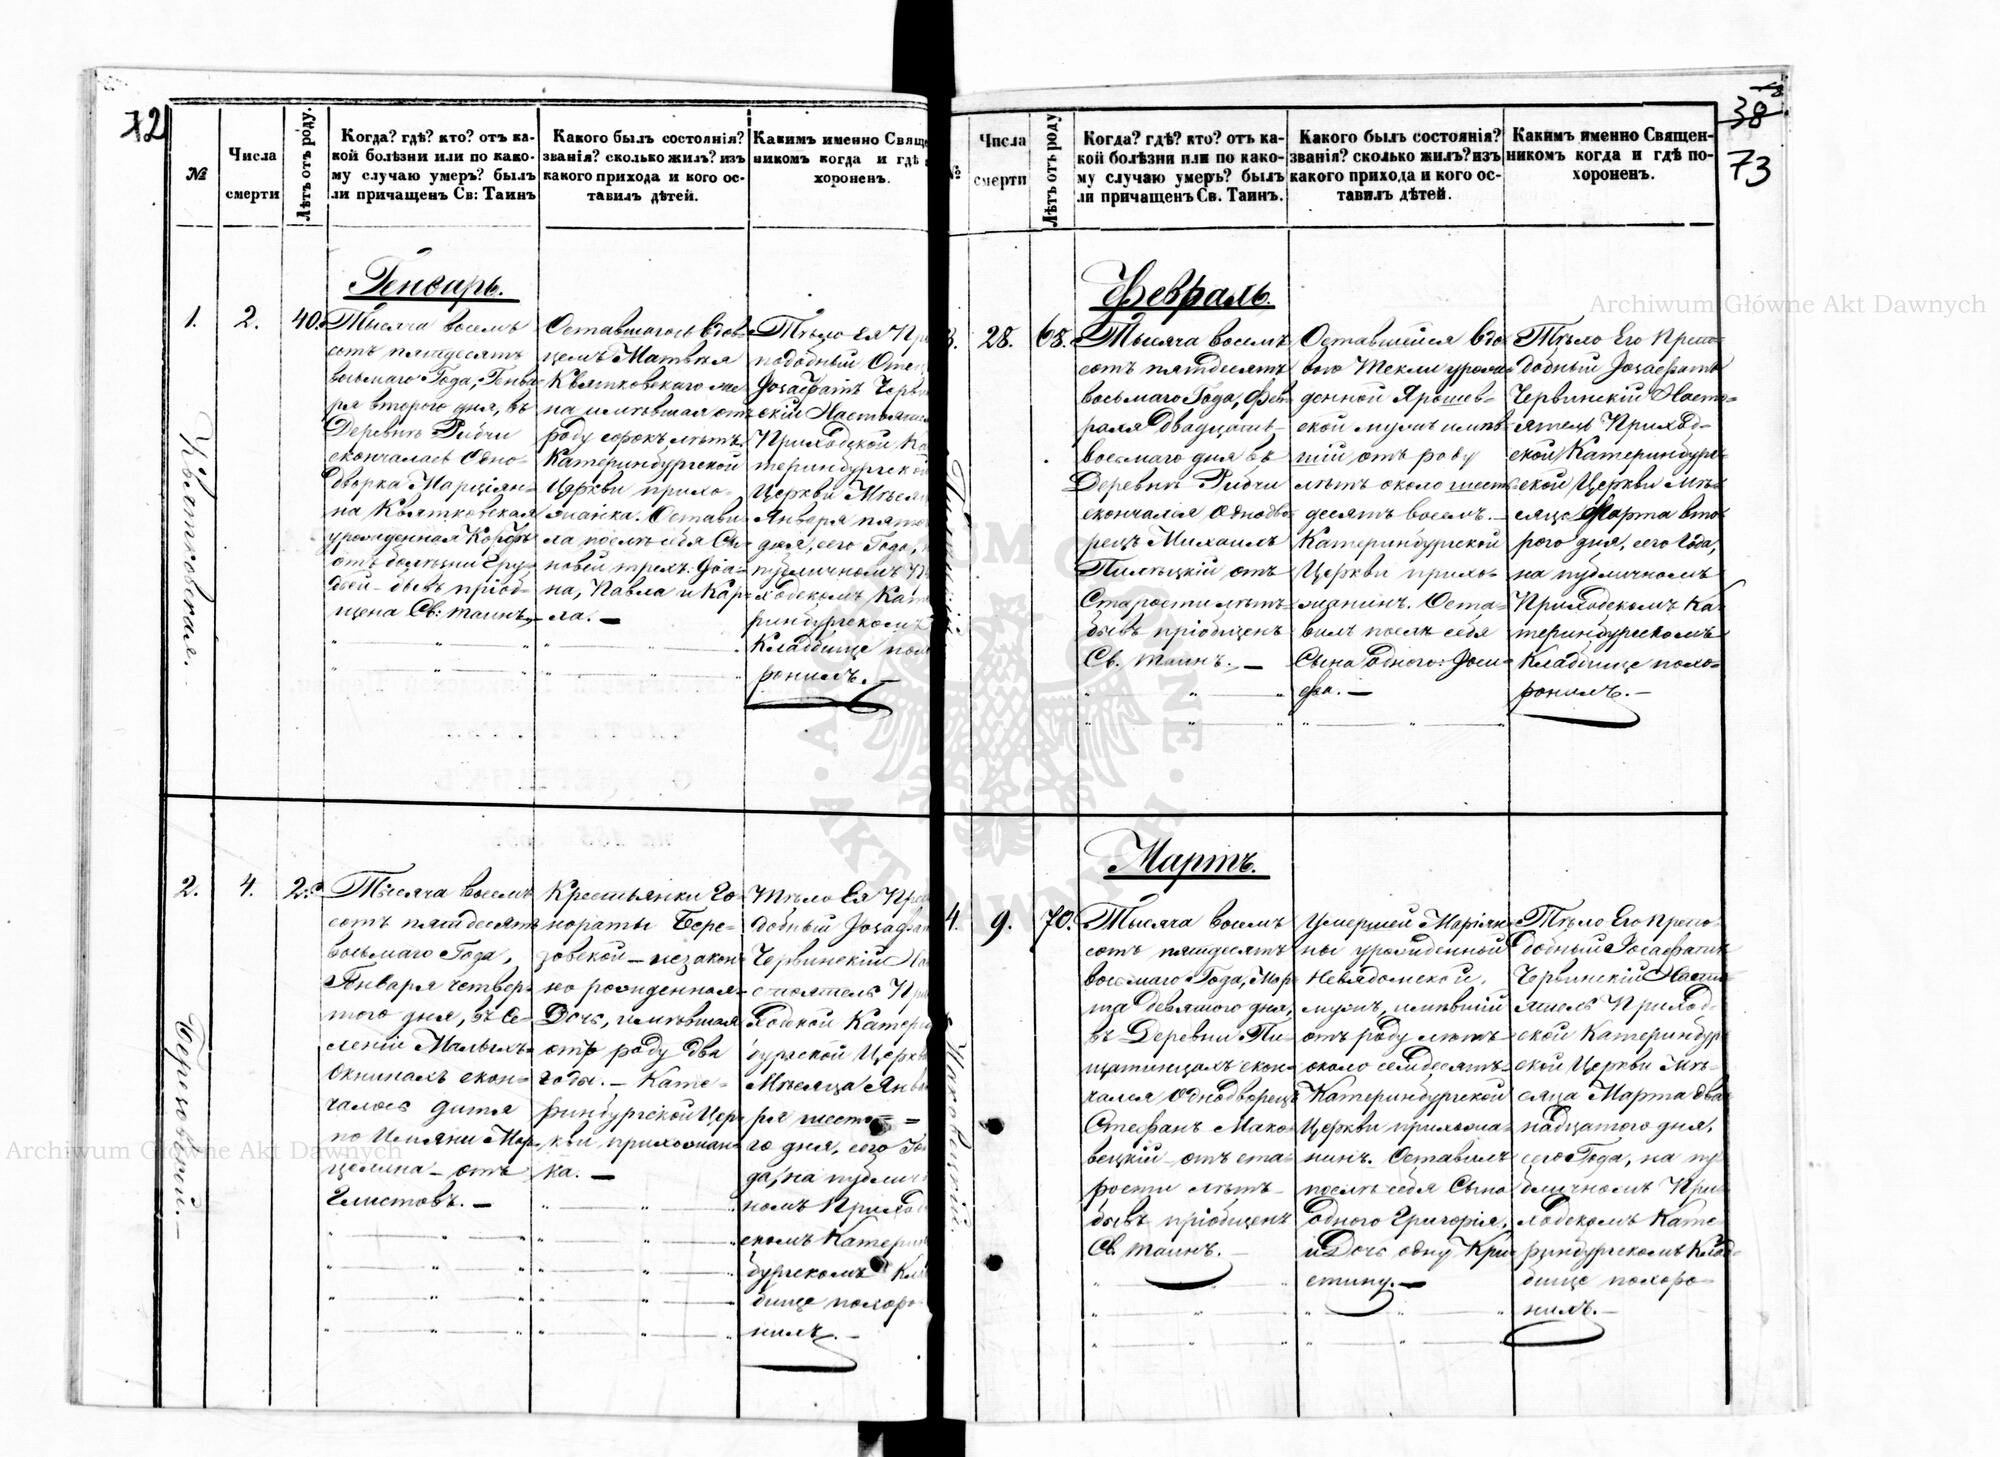 72
№
Числа
смерти
Лѣтъ отъ роду.
Когда? гдѣ? кто? отъ ка-
кой болѣзни или по како-
му случаю умеръ? былъ
ли причащенъ Св: Таинъ
Какого былъ состоянія?
званія? сколько жилъ? изъ
какого прихода и кого ос-
тавилъ дѣтей.
Какимъ именно Свяще
никомъ когда и гдѣ
хороненъ.
Генварь.
1.
2.
40.
Квятковская.
Тысяча восемь
сотъ пятдесятъ
восьмаго Года, Генва-
ря второго дня, въ
Деревнѣ
скончалась Одно-
дворка Марціян-
на Квятковская
урожденная
отъ болѣзни гру-
дной бывъ пріоб-
щена Св: таинъ,
Оставшагось вдов-
цемъ Матвѣя
Квятковскаго же-
на имѣвшая отъ
роду сорокъ лѣтъ
Катеринбургской
Церкви прихо-
жанка. Остави-
ла послѣ себя Сы-
новей трехъ: Іоа-
на, Павла и Кар-
ла. —
Тѣло Ея Пр
подобный Оте
Іозафатъ Черви
скій Настояте
Приходской Ка
теринбургской
Церкви Мѣся
Января пято
дня, сего Года,
публичномъ П
ходскомъ Кат
ринбургскомъ
Кладбище пох
ронилъ. —
2.
4.
2.
Березовской —
Тысяча восемь
сотъ пятдесятъ
восьмаго Года,
Генваря четвер-
того дня, въ Се-
леніи Малыхъ-
Окнинахъ скон-
чалось дитя
по Имяни Мар-
целина — отъ
Глистовъ. —
Крестьянки Го-
нораты Бере-
зовской — незакон-
но рожденная
Дочь, имѣвшая
отъ роду два
года. — Кате-
ринбургской Цер-
кви прихожан-
ка. —
Тѣло Ея Пре
добный Іозафат
Червинскій На
стоятель Пр
ходской Катери
бургской Церкв
Мѣсяца Янва
ря шесто=
го дня, сего Го
да, на публич
номъ Приход
скомъ Катерин
бургскомъ Кла
бище похоро
нилъ. —
38
73
№
Числа
смерти
Лѣтъ отъ роду
Когда? гдѣ? кто? отъ ка-
кой болѣзни или по како-
му случаю умеръ? былъ
ли причащенъ Св. Таинъ.
Какого былъ состоянія?
званія? сколько жилъ? изъ
какого прихода и кого ос-
тавилъ дѣтей.
Какимъ именно Священ-
никомъ когда и гдѣ по-
хороненъ.
Февраль.
3.
28.
68.
Тысяча восемь
сотъ пятдесятъ
восьмаго Года, Фев-
раля двадцать-
восьмаго дня въ
Деревнѣ
скончался Однодво-
рецъ Михаилъ
отъ
Старости лѣтъ
бывъ пріобщенъ
Св. таинъ. —
Оставшейся вдо-
вою Текли урож-
денной Ярошев-
ской мужъ имѣв-
шій отъ роду
лѣтъ около шесть
десятъ восемь. —
Катеринбургской
Церкви прихо-
жанинъ. Оста-
вилъ послѣ себя
Сына одного: Іоси-
фа. —
Тѣло Его Препо-
добный Іозафатъ
Червинскій Насто-
ятель Приход-
ской Катеринбург-
ской Церкви Мѣ-
сяца Марта вто-
рого дня, сего Года,
на публичномъ
Приходскомъ Ка-
теринбургскомъ
Кладбище похо-
ронилъ. —
Мартъ.
4.
9.
70.
Маковецкій.
Тысяча восемь
сотъ пятдесятъ
восьмаго Года, Мар-
та девятого дня,
въ Деревни Пи-
щатинцахъ скон-
чался Однодворецъ
Стефанъ Мако-
вецкій — отъ ста-
рости лѣтъ —
бывъ пріобщенъ
Св. таинъ. —
Умершей Маріян-
ны урожденной
Невядомской,
мужъ, имѣвшій
отъ роду лѣтъ
около семдесятъ
Катеринбургской
Церкви прихожа-
нинъ. Оставилъ
послѣ себя Сына
одного Григорія,
и Дочь одну Кри-
стину. —
Тѣло Его Препо-
добный Іосафатъ
Червинскій Насто-
ятель Приход-
ской Катеринбург-
ской Церкви Мѣ-
сяца Марта два-
надцатого дня,
сего Года, на пу-
бличномъ При-
ходскомъ Кате-
ринбургскомъ Клад-
бище похоро-
нилъ. —
Archiwum Główne Akt Dawnych
Archiwum Główne Akt Dawnych